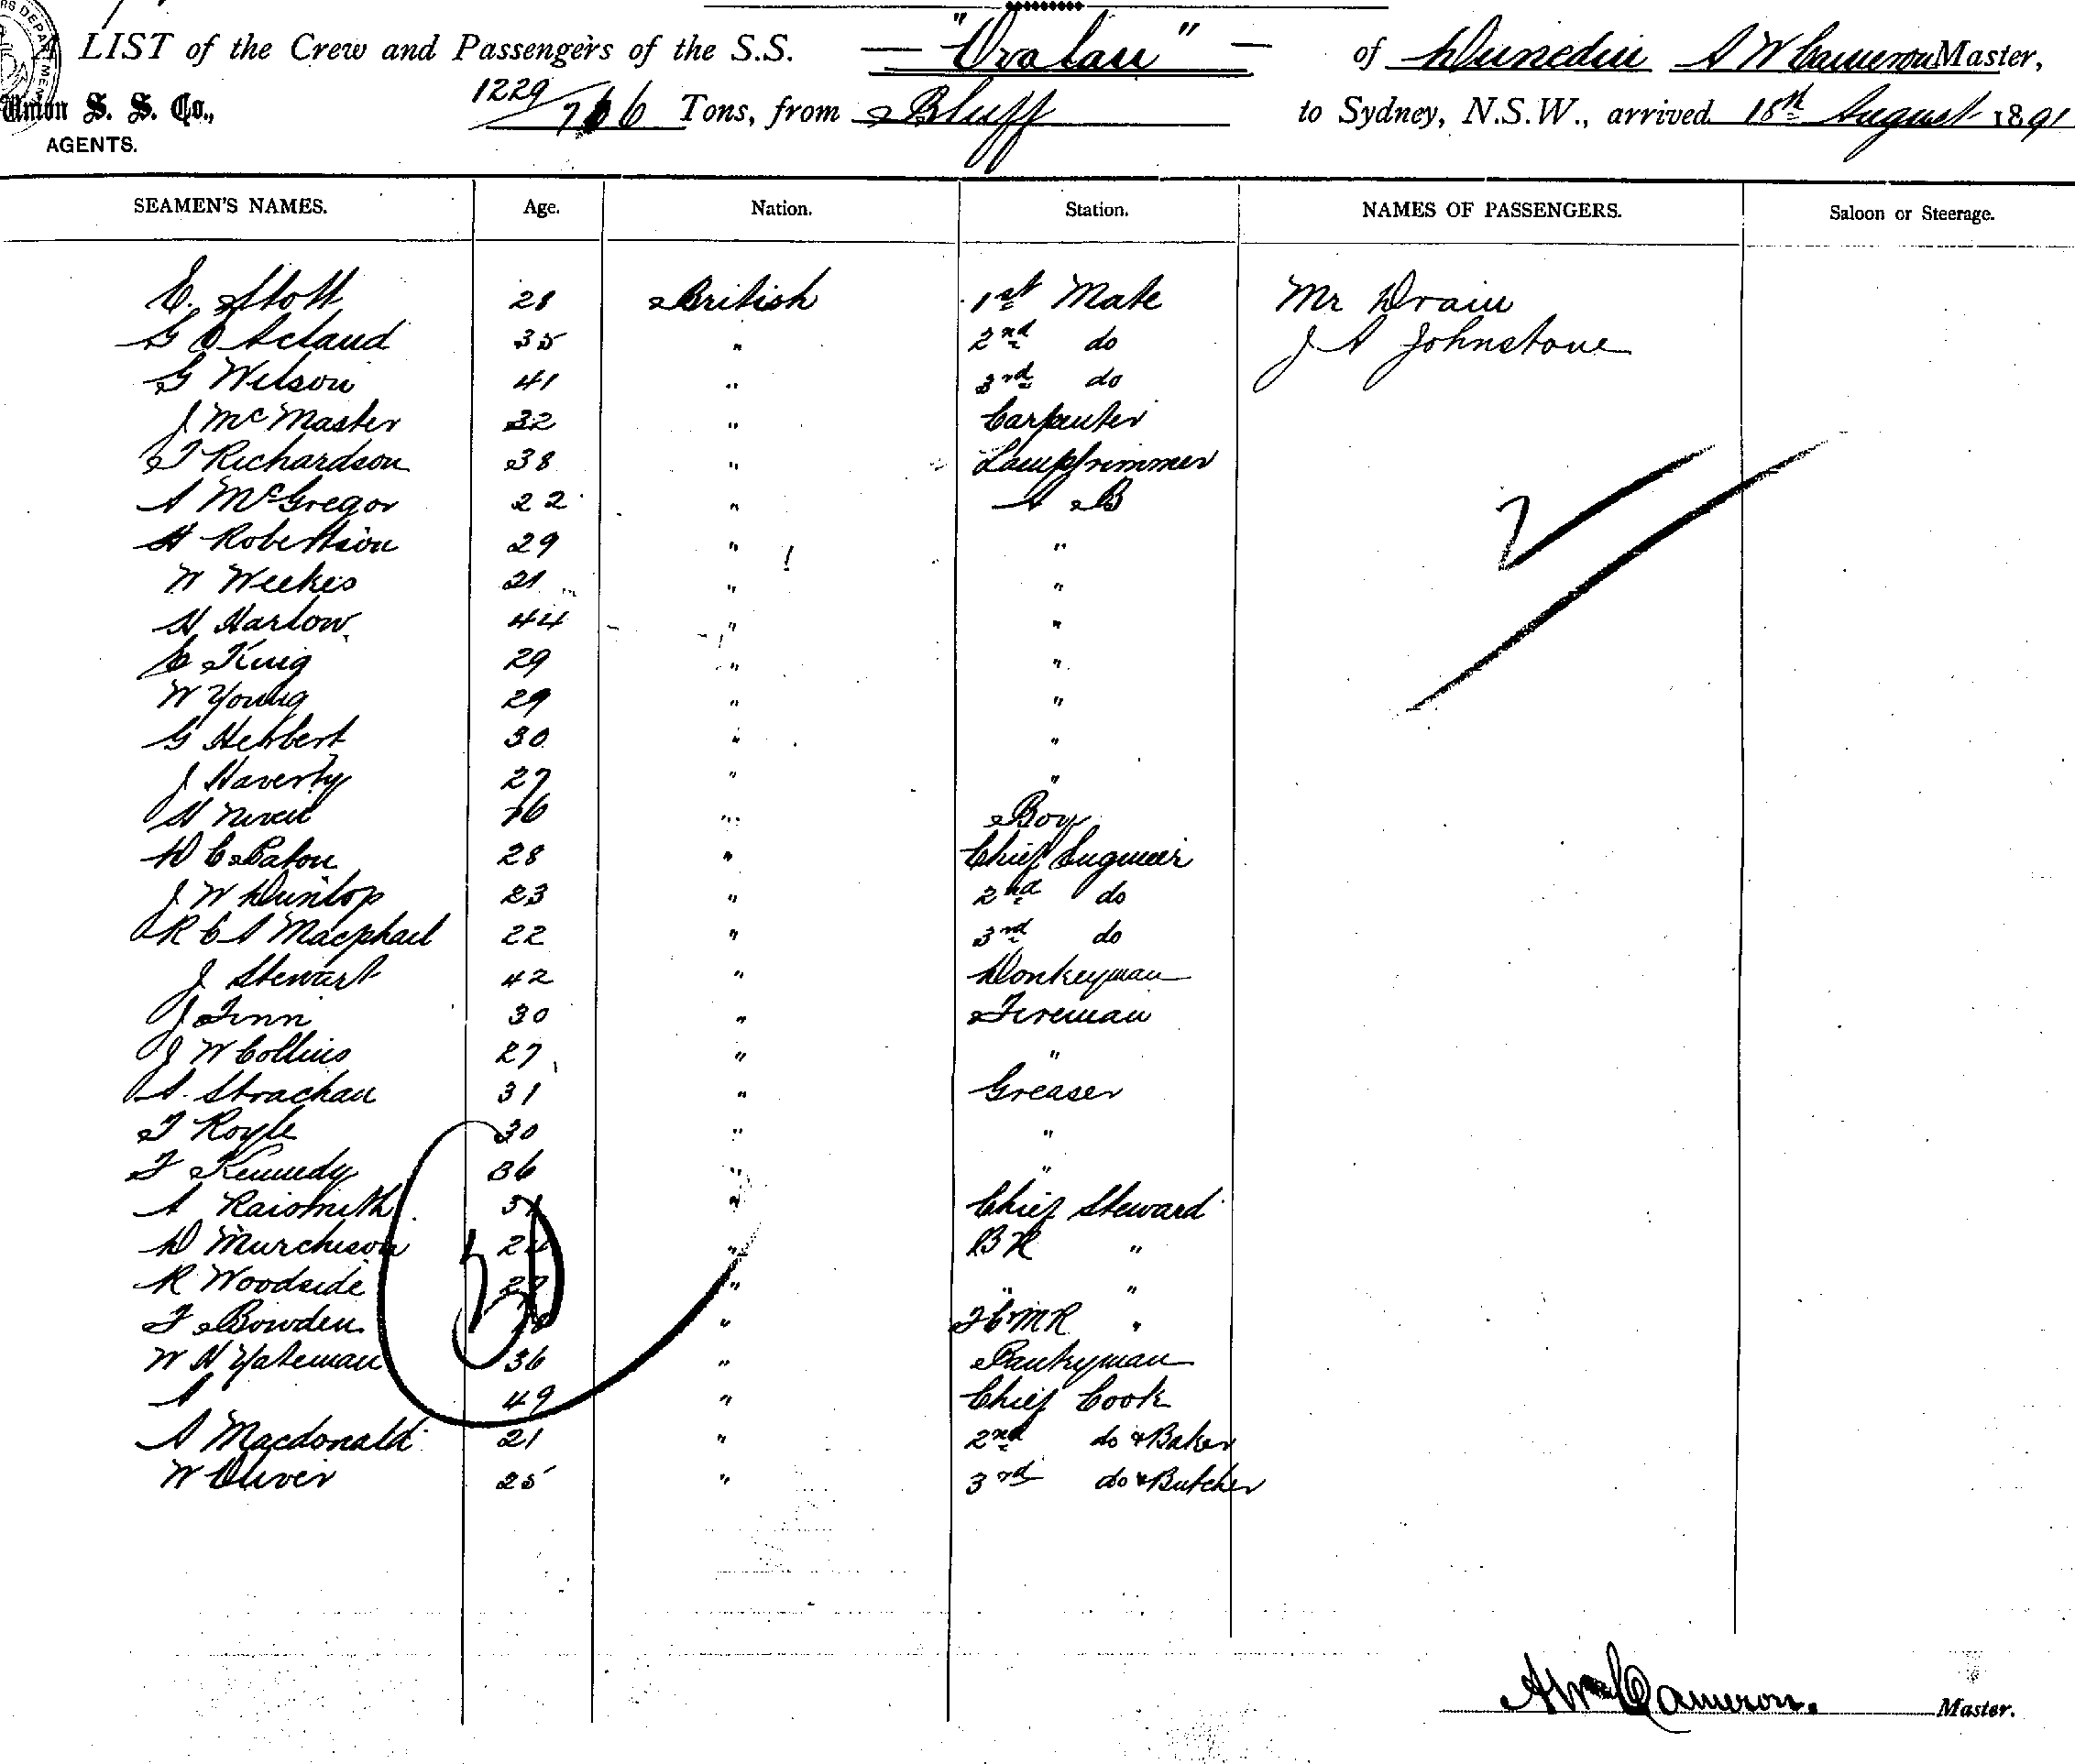 LIST of the Crew and Passengers of the S.S. — "Ovalau" — of Dunedin A W Cameron Master,
Union S. S. Co., 1229/766 Tons, from Bluff to Sydney, N.S.W., arrived 18th August 1891
AGENTS.
SEAMEN'S NAMES. Age. Nation. Station. NAMES OF PASSENGERS. Saloon or Steerage.
E. Stott 28 British 1st Mate Mr Drain
G O Acland 35 " 2nd do J A Johnstone
G Wilson 41 " 3rd do
J McMaster 32 " Carpenter
T Richardson 38 " Lamptrimmer
A McGregor 22 " A B
H Robertson 29 " "
W Weekes 21 " "
H Harlow 44 " "
C King 29 " "
W Young 29 " "
G Herbert 30 " "
J Haverty 27 " "
H 16 " Boy
D C Paton 28 " Chief Engineer
J W Dunlop 23 " 2nd do
R C A Macphail 22 " 3rd do
J Stewart 42 " Donkeyman
J Finn 30 " Fireman
J W Collins 27 " "
A. Strachan 31 " Greaser
T Royle 30 " "
F Kennedy 36 " "
A Raismith " Chief Steward
D Murchison " B R "
R Woodside " " "
F Bowden " F C & M R "
W H Yateman 36 " Pantryman
A 49 " Chief Cook
A Macdonald 21 " 2nd do & Baker
W Oliver 25 " 3rd do & Butcher
2
AWmCameron. Master.